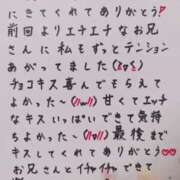 にきてくれてありがとう!
前回よりエチエチなお兄
さんに私もずっとテンション
あがってました(≧ε≦)
チョコキス喜んでもらえて
よかった〜(〃〃)甘くてエッチ
なキスいっぱいできて気持
ちよかった〜(〃〃)最後まで
キスしてくれてありがとう
お兄さんとイチャイチャできて